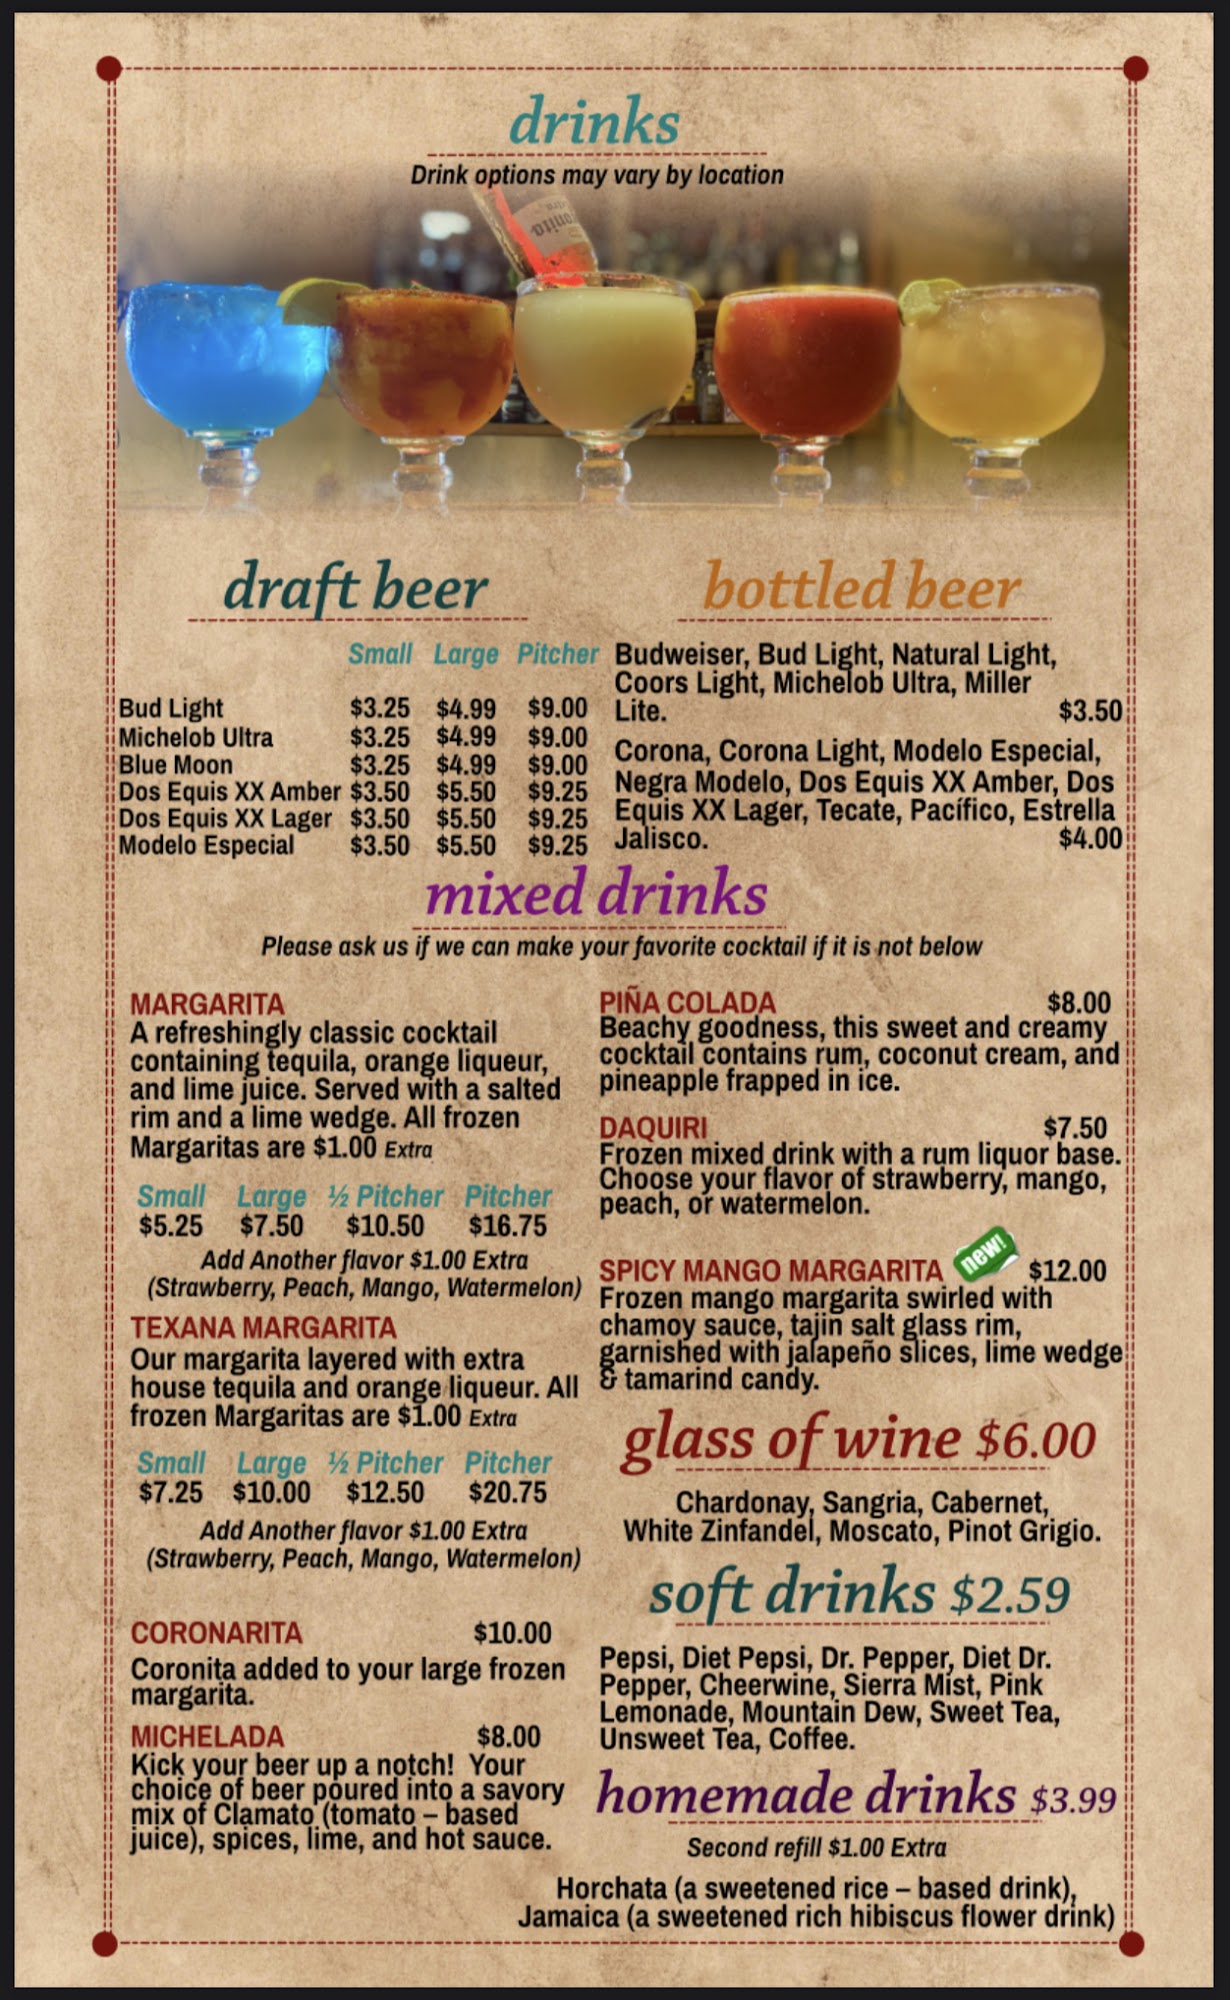 drinks
Drink options may vary by location
draft beer
Small Large Pitcher
Bud Light $3.25 $4.99 $9.00
Michelob Ultra $3.25 $4.99 $9.00
Blue Moon $3.25 $4.99 $9.00
Dos Equis XX Amber $3.50 $5.50 $9.25
Dos Equis XX Lager $3.50 $5.50 $9.25
Modelo Especial $3.50 $5.50 $9.25
bottled beer
Budweiser, Bud Light, Natural Light,
Coors Light, Michelob Ultra, Miller
Lite. $3.50
Corona, Corona Light, Modelo Especial,
Negra Modelo, Dos Equis XX Amber, Dos
Equis XX Lager, Tecate, Pacífico, Estrella
Jalisco. $4.00
mixed drinks
Please ask us if we can make your favorite cocktail if it is not below
MARGARITA
A refreshingly classic cocktail
containing tequila, orange liqueur,
and lime juice. Served with a salted
rim and a lime wedge. All frozen
Margaritas are $1.00 Extra
Small Large ½ Pitcher Pitcher
$5.25 $7.50 $10.50 $16.75
Add Another flavor $1.00 Extra
(Strawberry, Peach, Mango, Watermelon)
TEXANA MARGARITA
Our margarita layered with extra
house tequila and orange liqueur. All
frozen Margaritas are $1.00 Extra
Small Large ½ Pitcher Pitcher
$7.25 $10.00 $12.50 $20.75
Add Another flavor $1.00 Extra
(Strawberry, Peach, Mango, Watermelon)
CORONARITA $10.00
Coronita added to your large frozen
margarita.
MICHELADA $8.00
Kick your beer up a notch! Your
choice of beer poured into a savory
mix of Clamato (tomato – based
juice), spices, lime, and hot sauce.
PIÑA COLADA $8.00
Beachy goodness, this sweet and creamy
cocktail contains rum, coconut cream, and
pineapple frapped in ice.
DAQUIRI $7.50
Frozen mixed drink with a rum liquor base.
Choose your flavor of strawberry, mango,
peach, or watermelon.
SPICY MANGO MARGARITA new! $12.00
Frozen mango margarita swirled with
chamoy sauce, tajin salt glass rim,
garnished with jalapeño slices, lime wedge
& tamarind candy.
glass of wine $6.00
Chardonay, Sangria, Cabernet,
White Zinfandel, Moscato, Pinot Grigio.
soft drinks $2.59
Pepsi, Diet Pepsi, Dr. Pepper, Diet Dr.
Pepper, Cheerwine, Sierra Mist, Pink
Lemonade, Mountain Dew, Sweet Tea,
Unsweet Tea, Coffee.
homemade drinks $3.99
Second refill $1.00 Extra
Horchata (a sweetened rice – based drink),
Jamaica (a sweetened rich hibiscus flower drink)